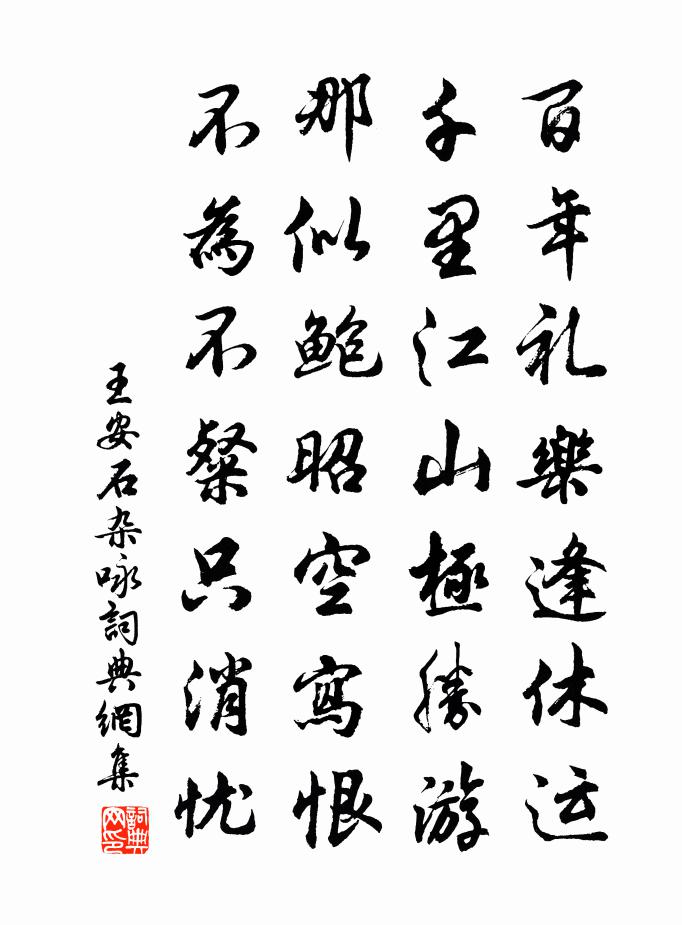 百年礼樂逢休运
千里江山極勝游
那似鮑昭空寫恨
不為不粲只消忧
王安石杂咏詞典網集
詞典网印